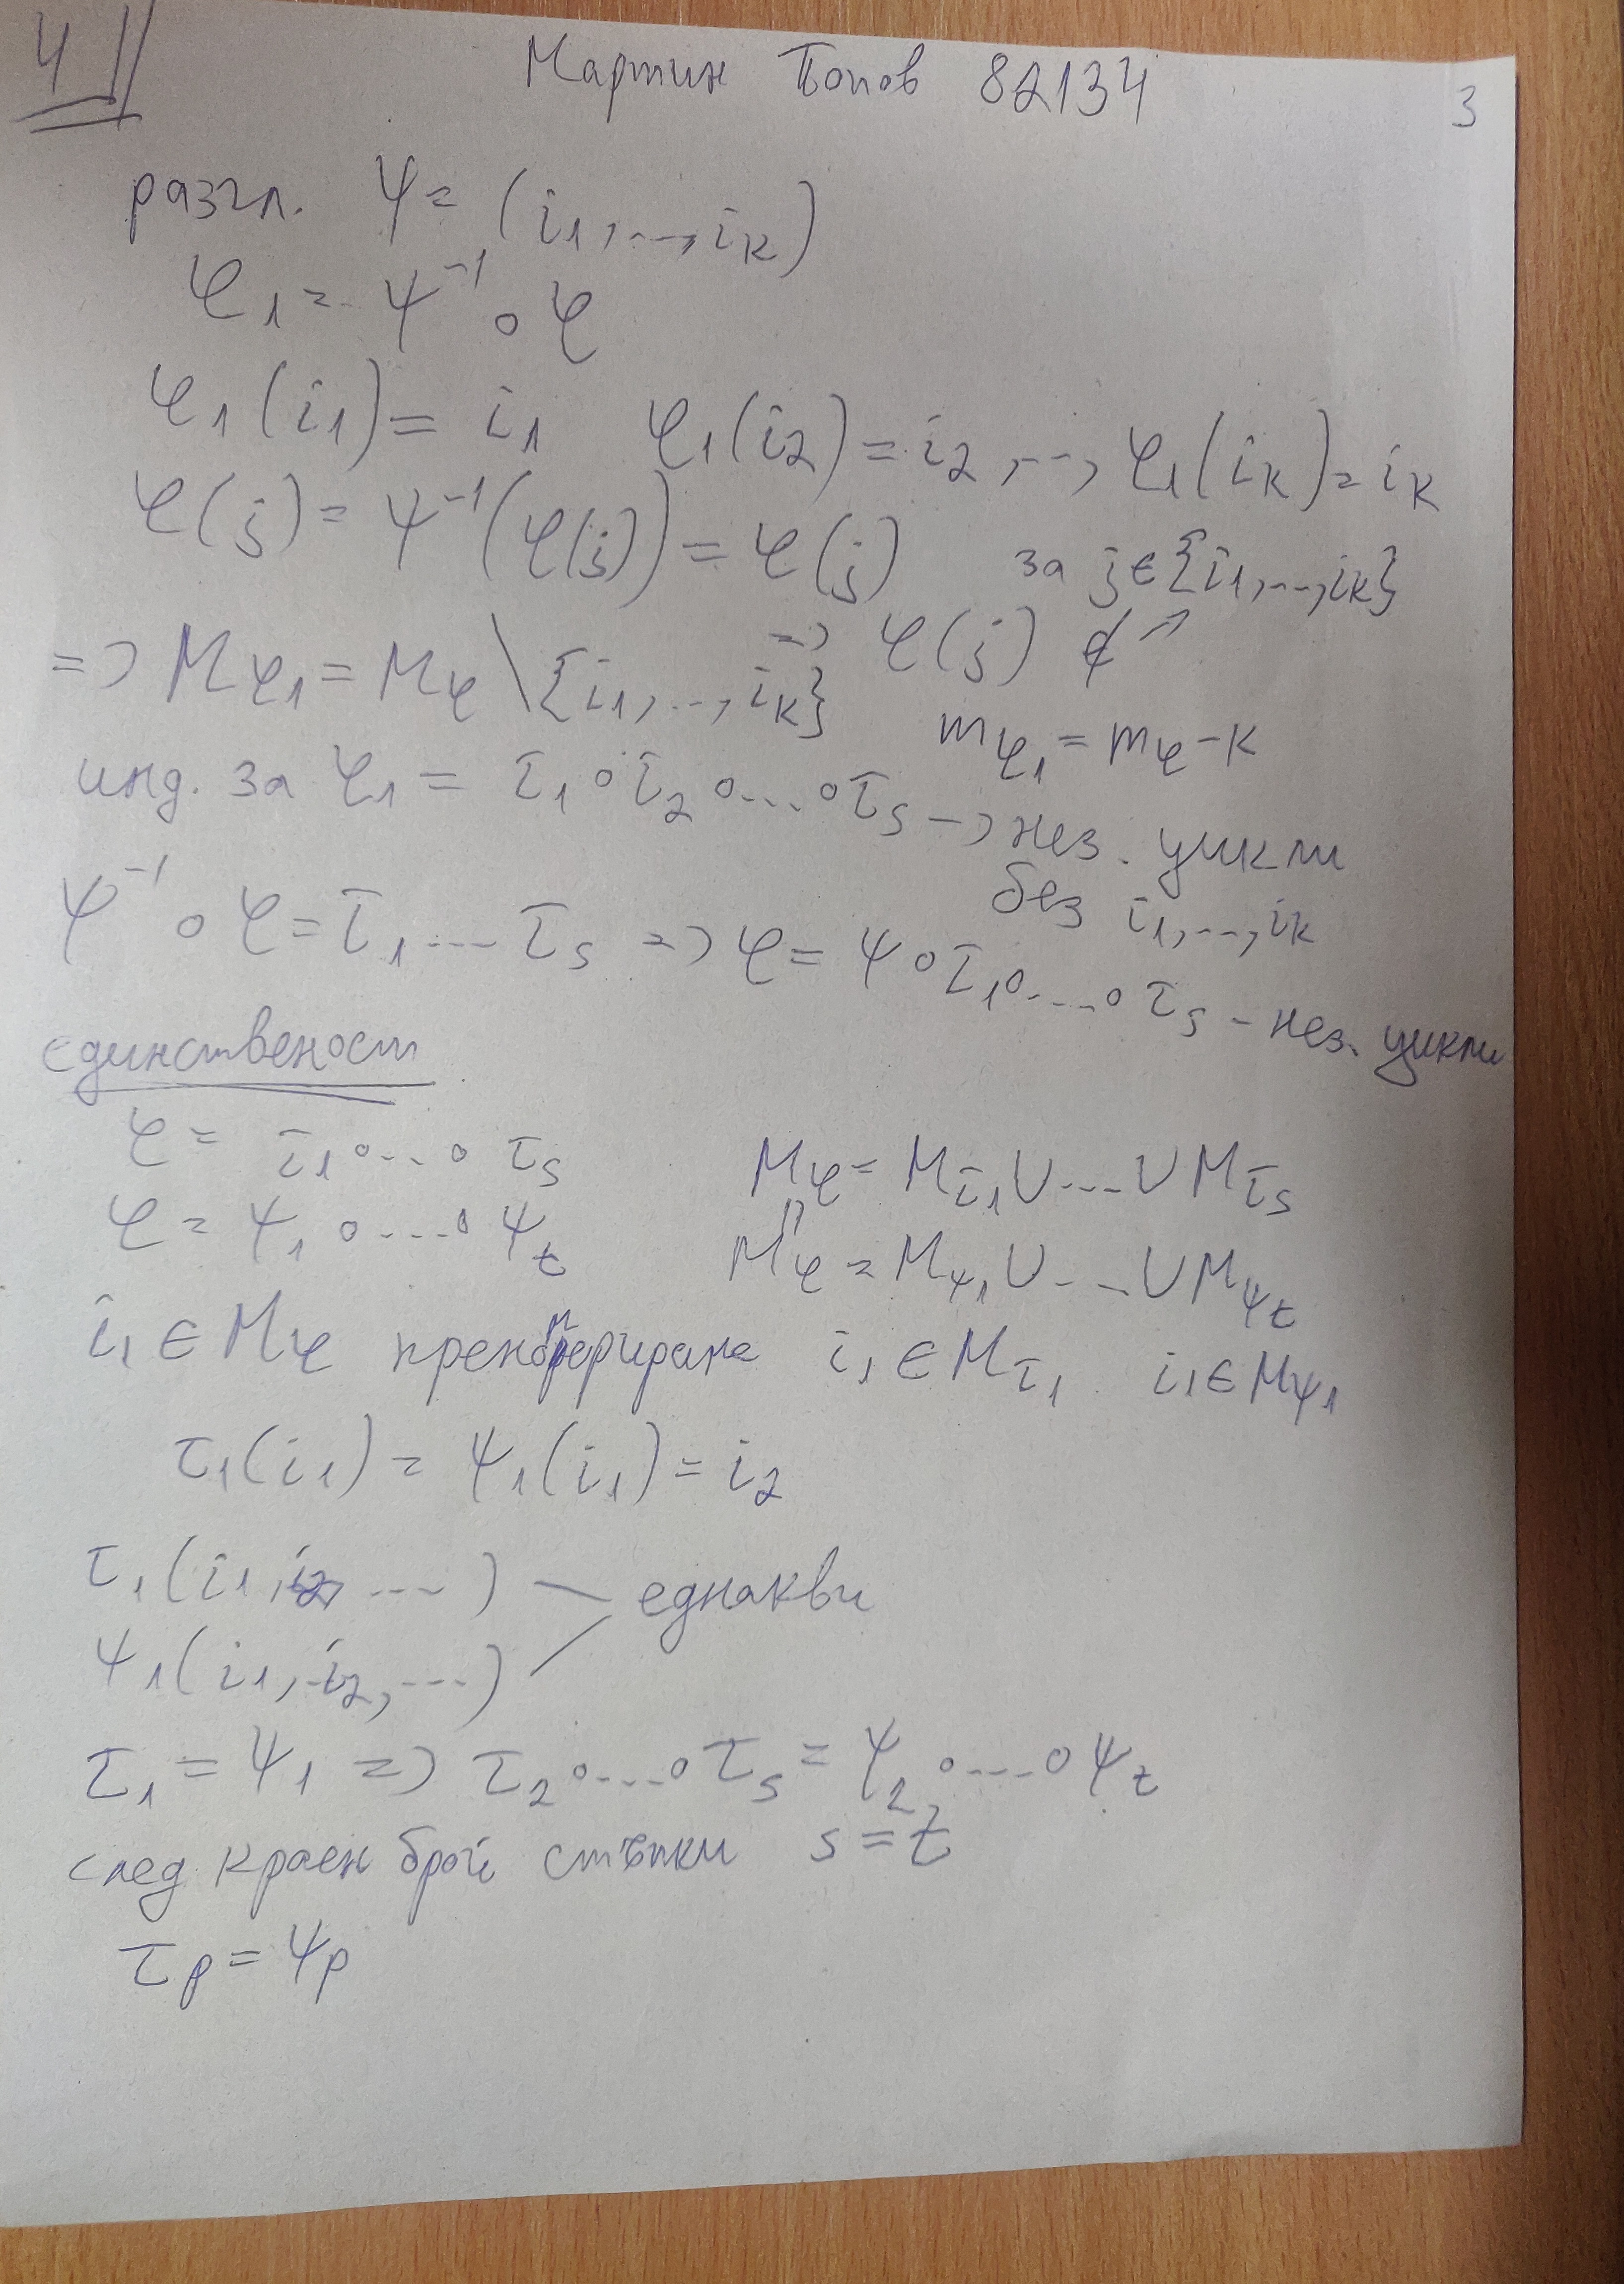 4
Мартин Попов 82134
3
разгл. ψ = (i1, ..., ik)
φ1 = ψ⁻¹ ∘ φ
φ1(i1) = i1 φ1(i2) = i2, ..., φ1(ik) = ik
φ(j) = ψ⁻¹(φ(j)) = φ(j) за j ∈ {i1, ..., ik}
=> φ(j) ∉ ↗
=> Mφ1 = Mφ \ {i1, ..., ik} mφ1 = mφ - k
инд. за φ1 = τ1 ∘ τ2 ∘ ... ∘ τs -> нез. цикли
без i1, ..., ik
ψ⁻¹ ∘ φ = τ1 ... τs => φ = ψ ∘ τ1 ∘ ... ∘ τs - нез. цикли
единственост
φ = τ1 ∘ ... ∘ τs Mφ = Mτ1 ∪ ... ∪ Mτs
φ = ψ1 ∘ ... ∘ ψt Mφ = Mψ1 ∪ ... ∪ Mψt
i1 ∈ Mφ i1 ∈ Mτ1 i1 ∈ Mψ1
τ1(i1) = ψ1(i1) = i2
τ1(i1, i2, ...)
еднакви
ψ1(i1, i2, ...)
τ1 = ψ1 => τ2 ∘ ... ∘ τs = ψ2 ∘ ... ∘ ψt
след краен брой стъпки s = t
τp = ψp